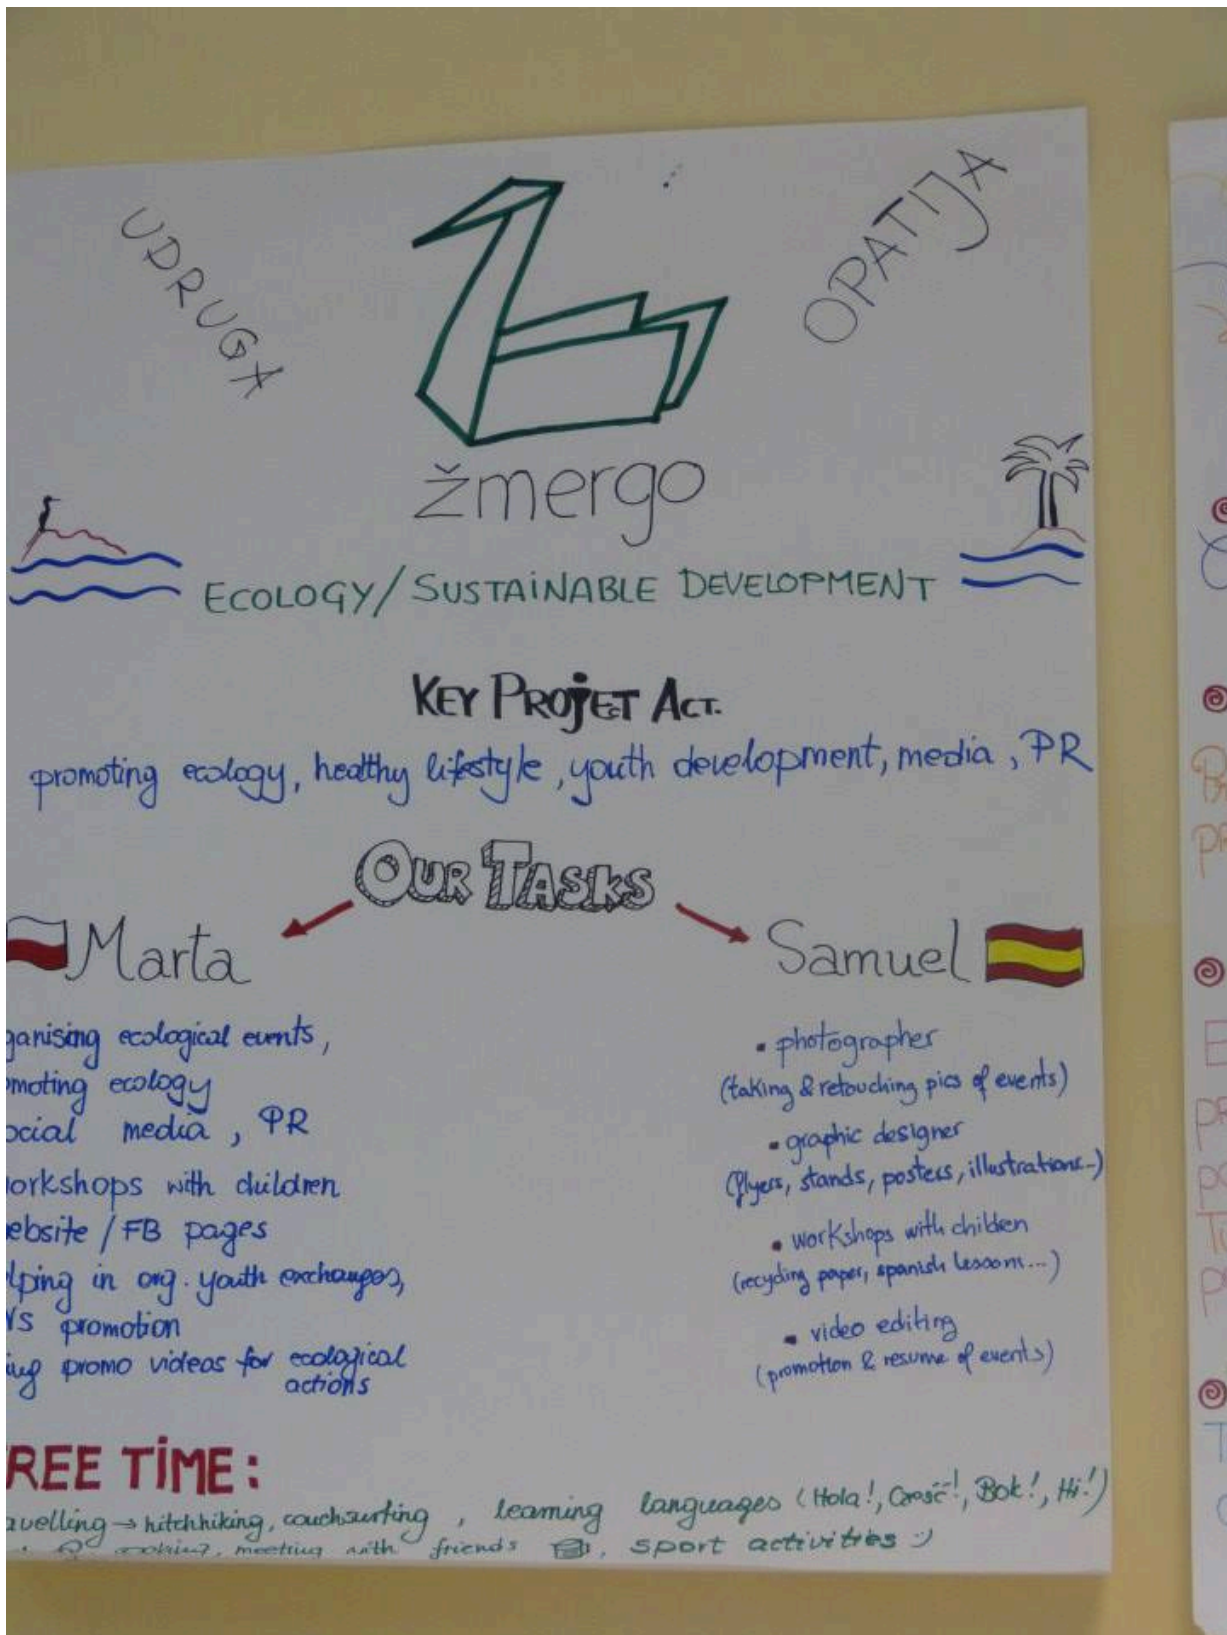 UDRUGA
OPATIJA
žmergo
ECOLOGY/SUSTAINABLE DEVELOPMENT
KEY PROJET ACT.
promoting ecology, healthy lifestyle, youth development, media, PR
OUR TASKS
Marta
ganising ecological events,
omoting ecology
ocial media, PR
orkshops with children
ebsite / FB pages
lping in org. youth exchanges,
VS promotion
promo videos for ecological
actions
Samuel
• photographer
(taking & retouching pics of events)
• graphic designer
(flyers, stands, posters, illustrations...)
• workshops with children
(recycling paper, spanish lessons...)
• video editing
(promotion & resume of events)
REE TIME:
avelling → hitchhiking, couchsurfing, learning languages (Hola!, Cześć!, Bok!, Hi!)
cooking, meeting with friends, sport activities :)